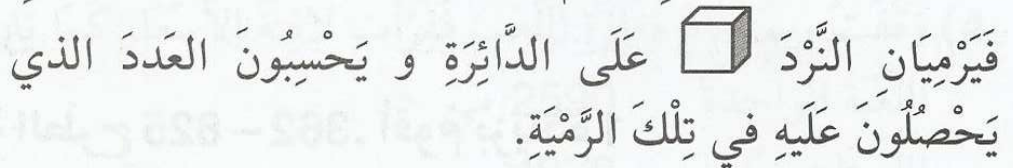 فَيَرْمِيَانِ النَّرْدَ عَلَى الدَّائِرَةِ و يَحْسِبُونَ العَدَدَ الذي
يَحْصُلُونَ عَلَيهِ في تِلْكَ الرَّمْيَةِ.